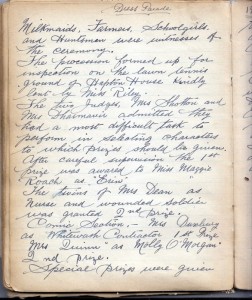 Dress Parade
Milkmaids, Farmers, Schoolgirls,
and Huntsmen were witnesses of
the Ceremony.
The procession formed up for
inspection on the lawn tennis
ground of Hapton House kindly
lent by Mrs Riley.
The two judges, Mrs Shotton and
Mrs admitted they
had a most difficult task to
perform in selecting characters
to which prizes should be given.
After careful supervision the 1st
prize was awared to Miss Maggie
Roach as
The twins of Mrs Dean as
Nurse and wounded soldier
was granted 2nd prize.
Comic Section. - Mrs Duxbury
as Whitworth Contractor 1st Prize
Mrs Quinn as "Molly O'Morgan"
2nd prize.
Special prizes were given